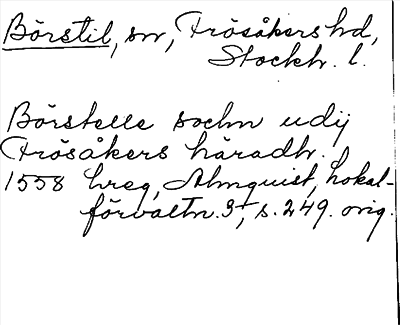 Börstil, sn, Frösåkers hd,
Stockh. l.
Börstelle sochn udij
Frösåkers häradh.
1558 hreg, Almquist, Lokal-
förvaltn. 3, s. 249. orig.